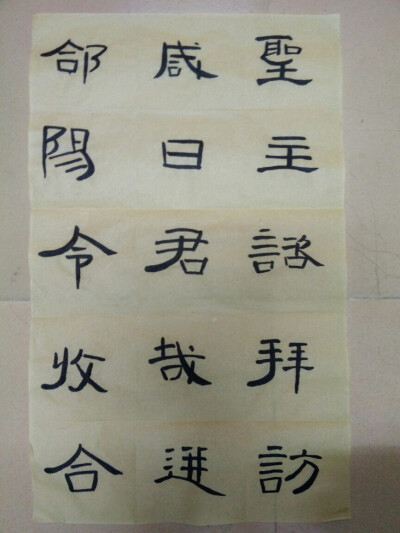 聖主諮拜訪
咸曰君哉進
郃陽令收合